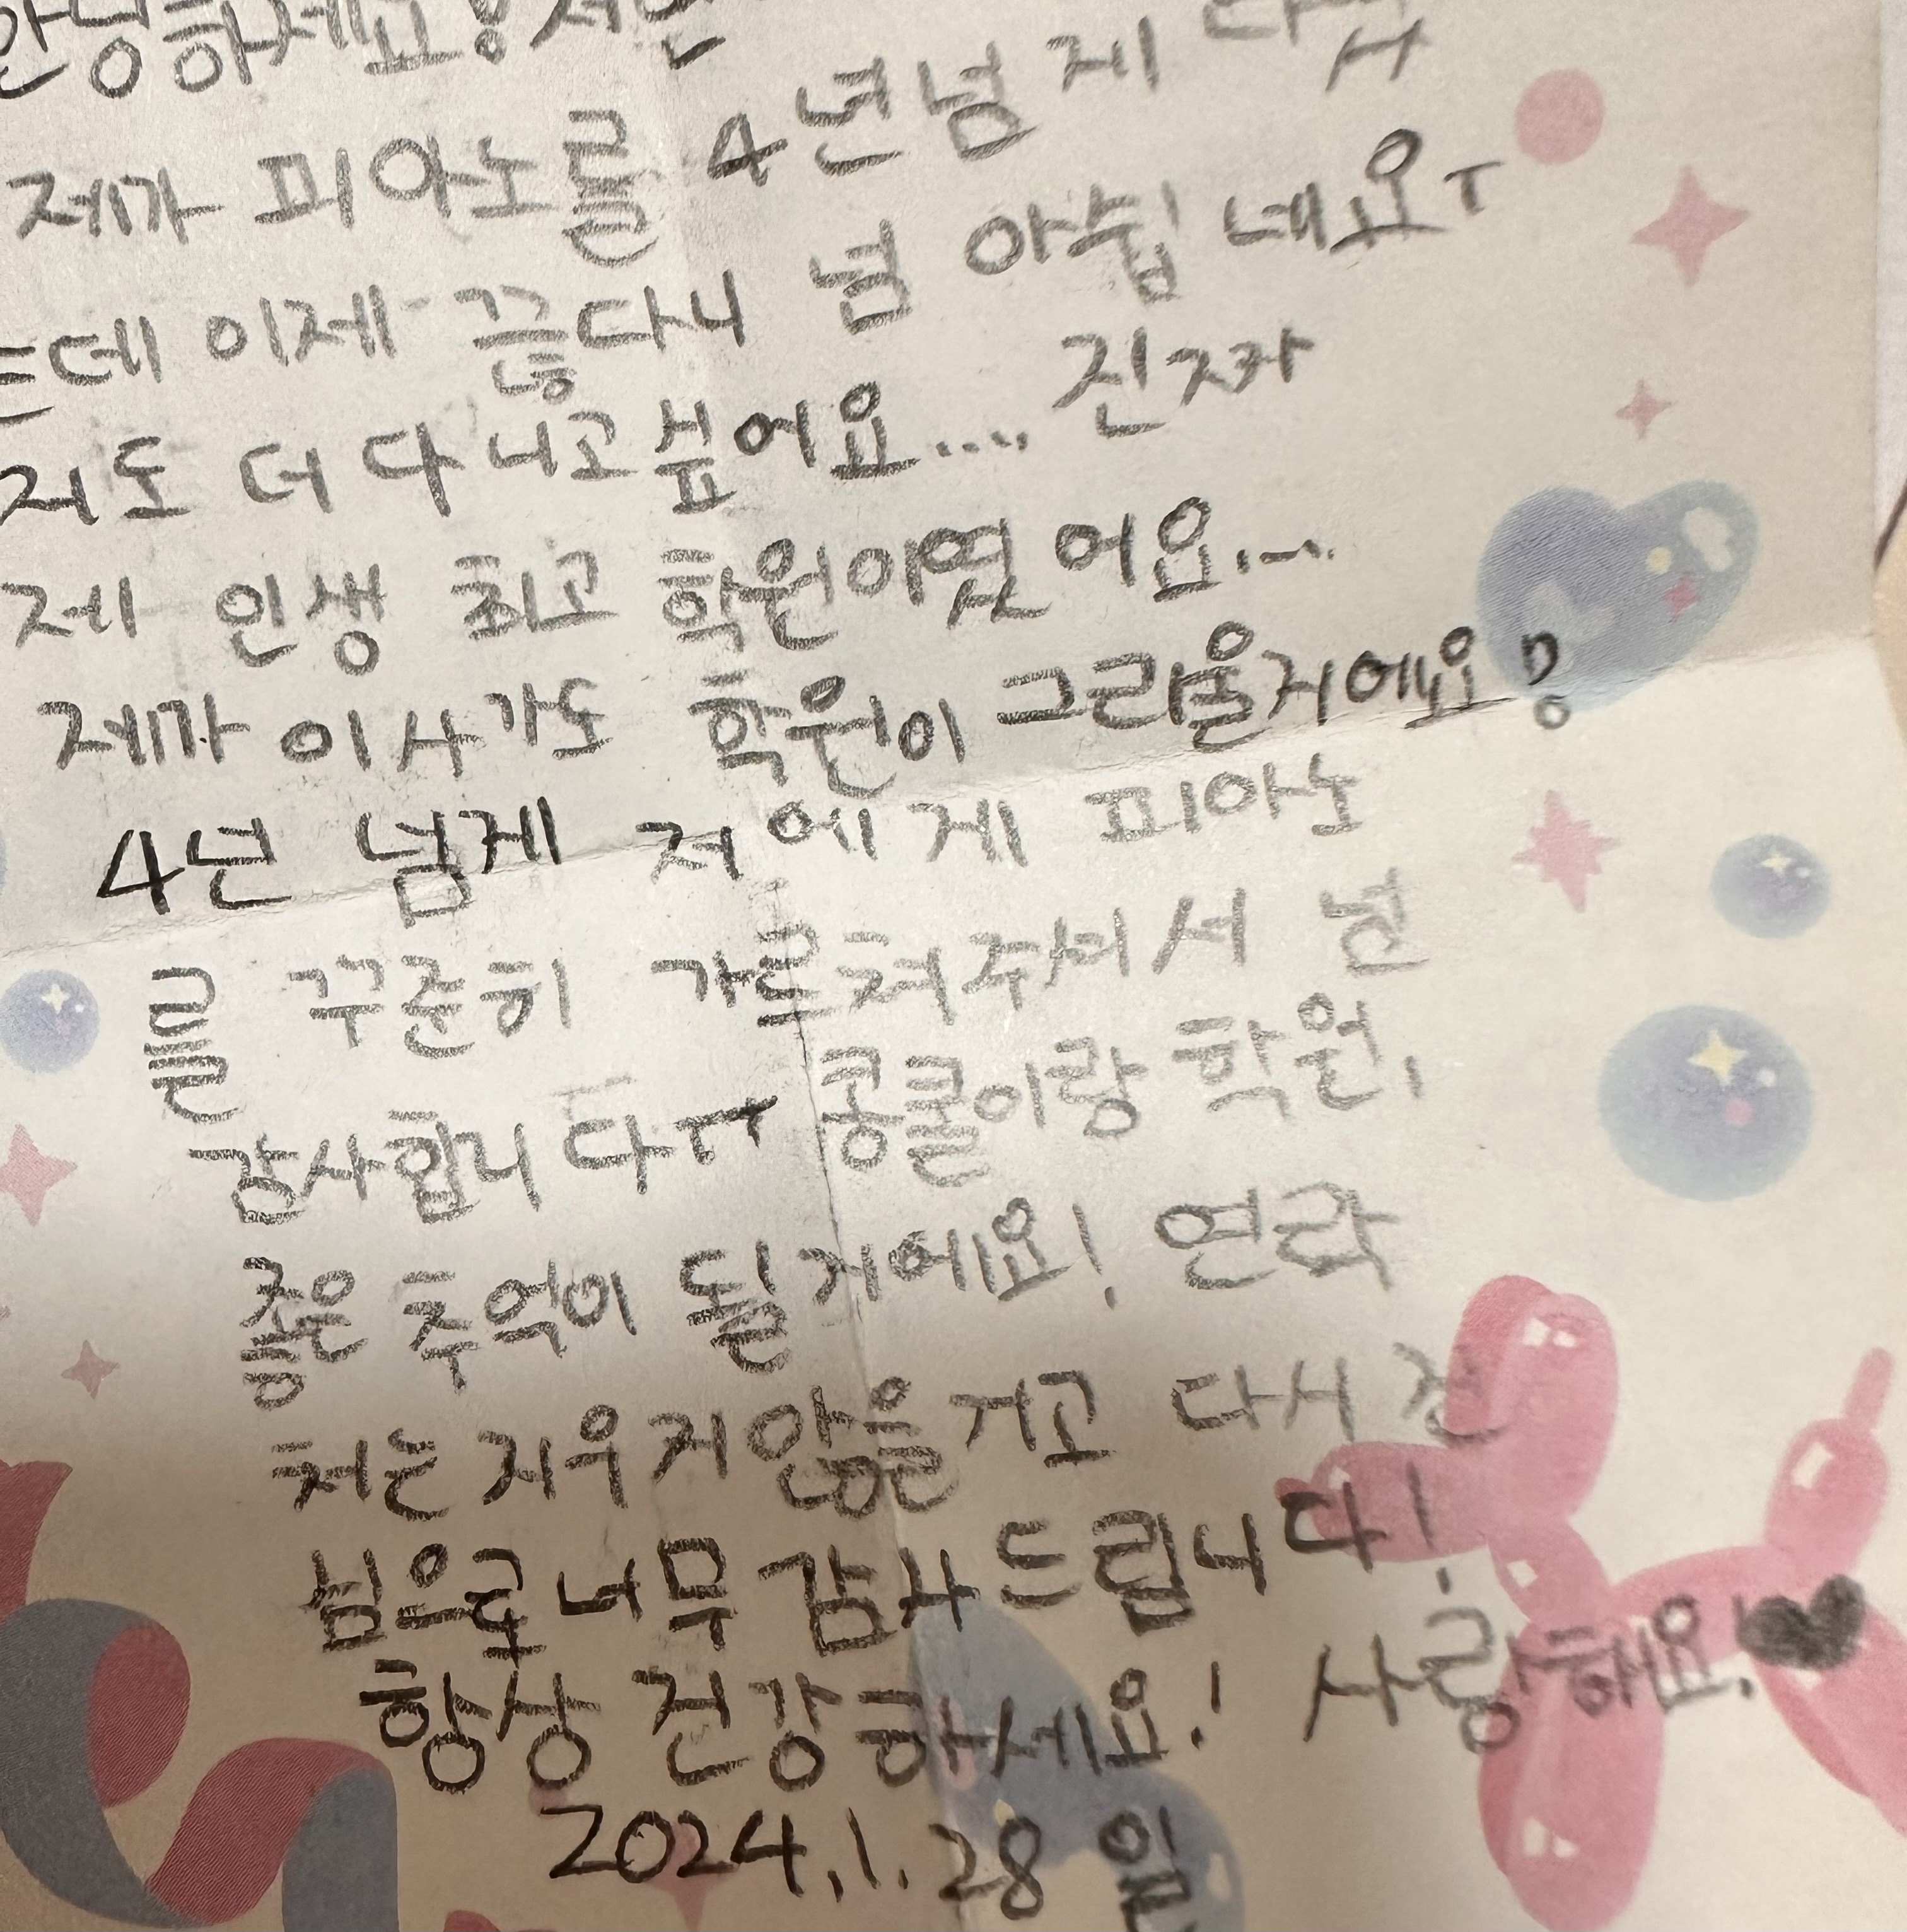 안녕하세요!
제가 피아노를 4년넘게
는데 이제 끊다니 넘 아쉽네요ㅜ
저도 더 다니고싶어요.... 진짜
제 인생 최고 학원이였어요....
제가 이사가도 학원이 그리울거에요!
4년 넘게 저에게 피아노
를 꾸준히 가르쳐주셔서 넘
감사합니다ㅜㅜ 콩쿨이랑 학원,
좋은 추억이 될거에요! 연락
처는 지우지않을거고 다시 진
심으로 너무 감사드립니다!
항상 건강하세요! 사랑해요!♥
2024.1.28일